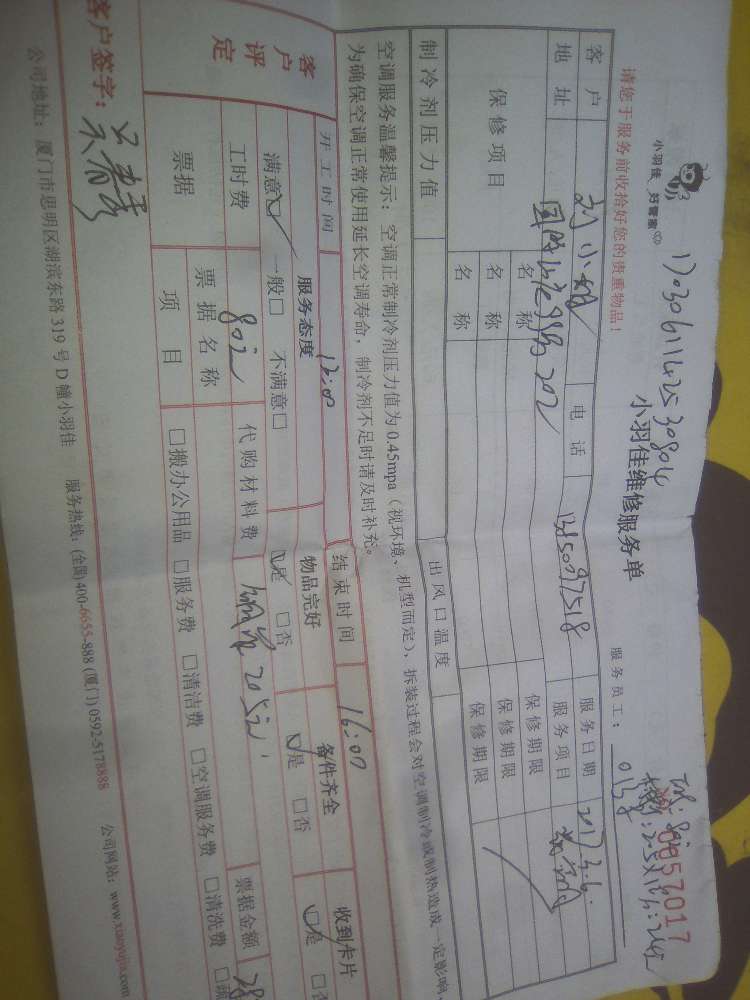 17030611425 30804
小羽佳 好管家
小羽佳维修服务单
0057017
请您于服务前收拾好您的贵重物品！
服务员工：
客户 刘小姐 电话 13850097518 服务日期 2017.3.6.
地址 202 服务项目
保修项目 名称 保修期限
名称 保修期限
名称 保修期限
制冷剂压力值 出风口温度
空调服务温馨提示：空调正常制冷剂压力值为0.45mpa（视环境、机型而定），拆装过程会对空调制冷或制热造成一定影响，
为确保空调正常使用延长空调寿命，制冷剂不足时请及时补充。
开工时间 13:00 结束时间 16:00
客户评定 服务态度 物品完好 备件齐全 收到卡片
满意☑ 一般□ 不满意□ ☑是 □否 ☑是 □否 ☑是
工时费 80元 代购材料费 205元 票据金额
票据 票据名称
项目 □搬办公用品 □服务费 □清洁费 □空调服务费 □清洗费
客户签字：
公司地址：厦门市思明区湖滨东路319号D幢小羽佳 服务热线：(全国)400-6655-888 (厦门)0592-5178888 公司网站：www.xiaoyujia.com